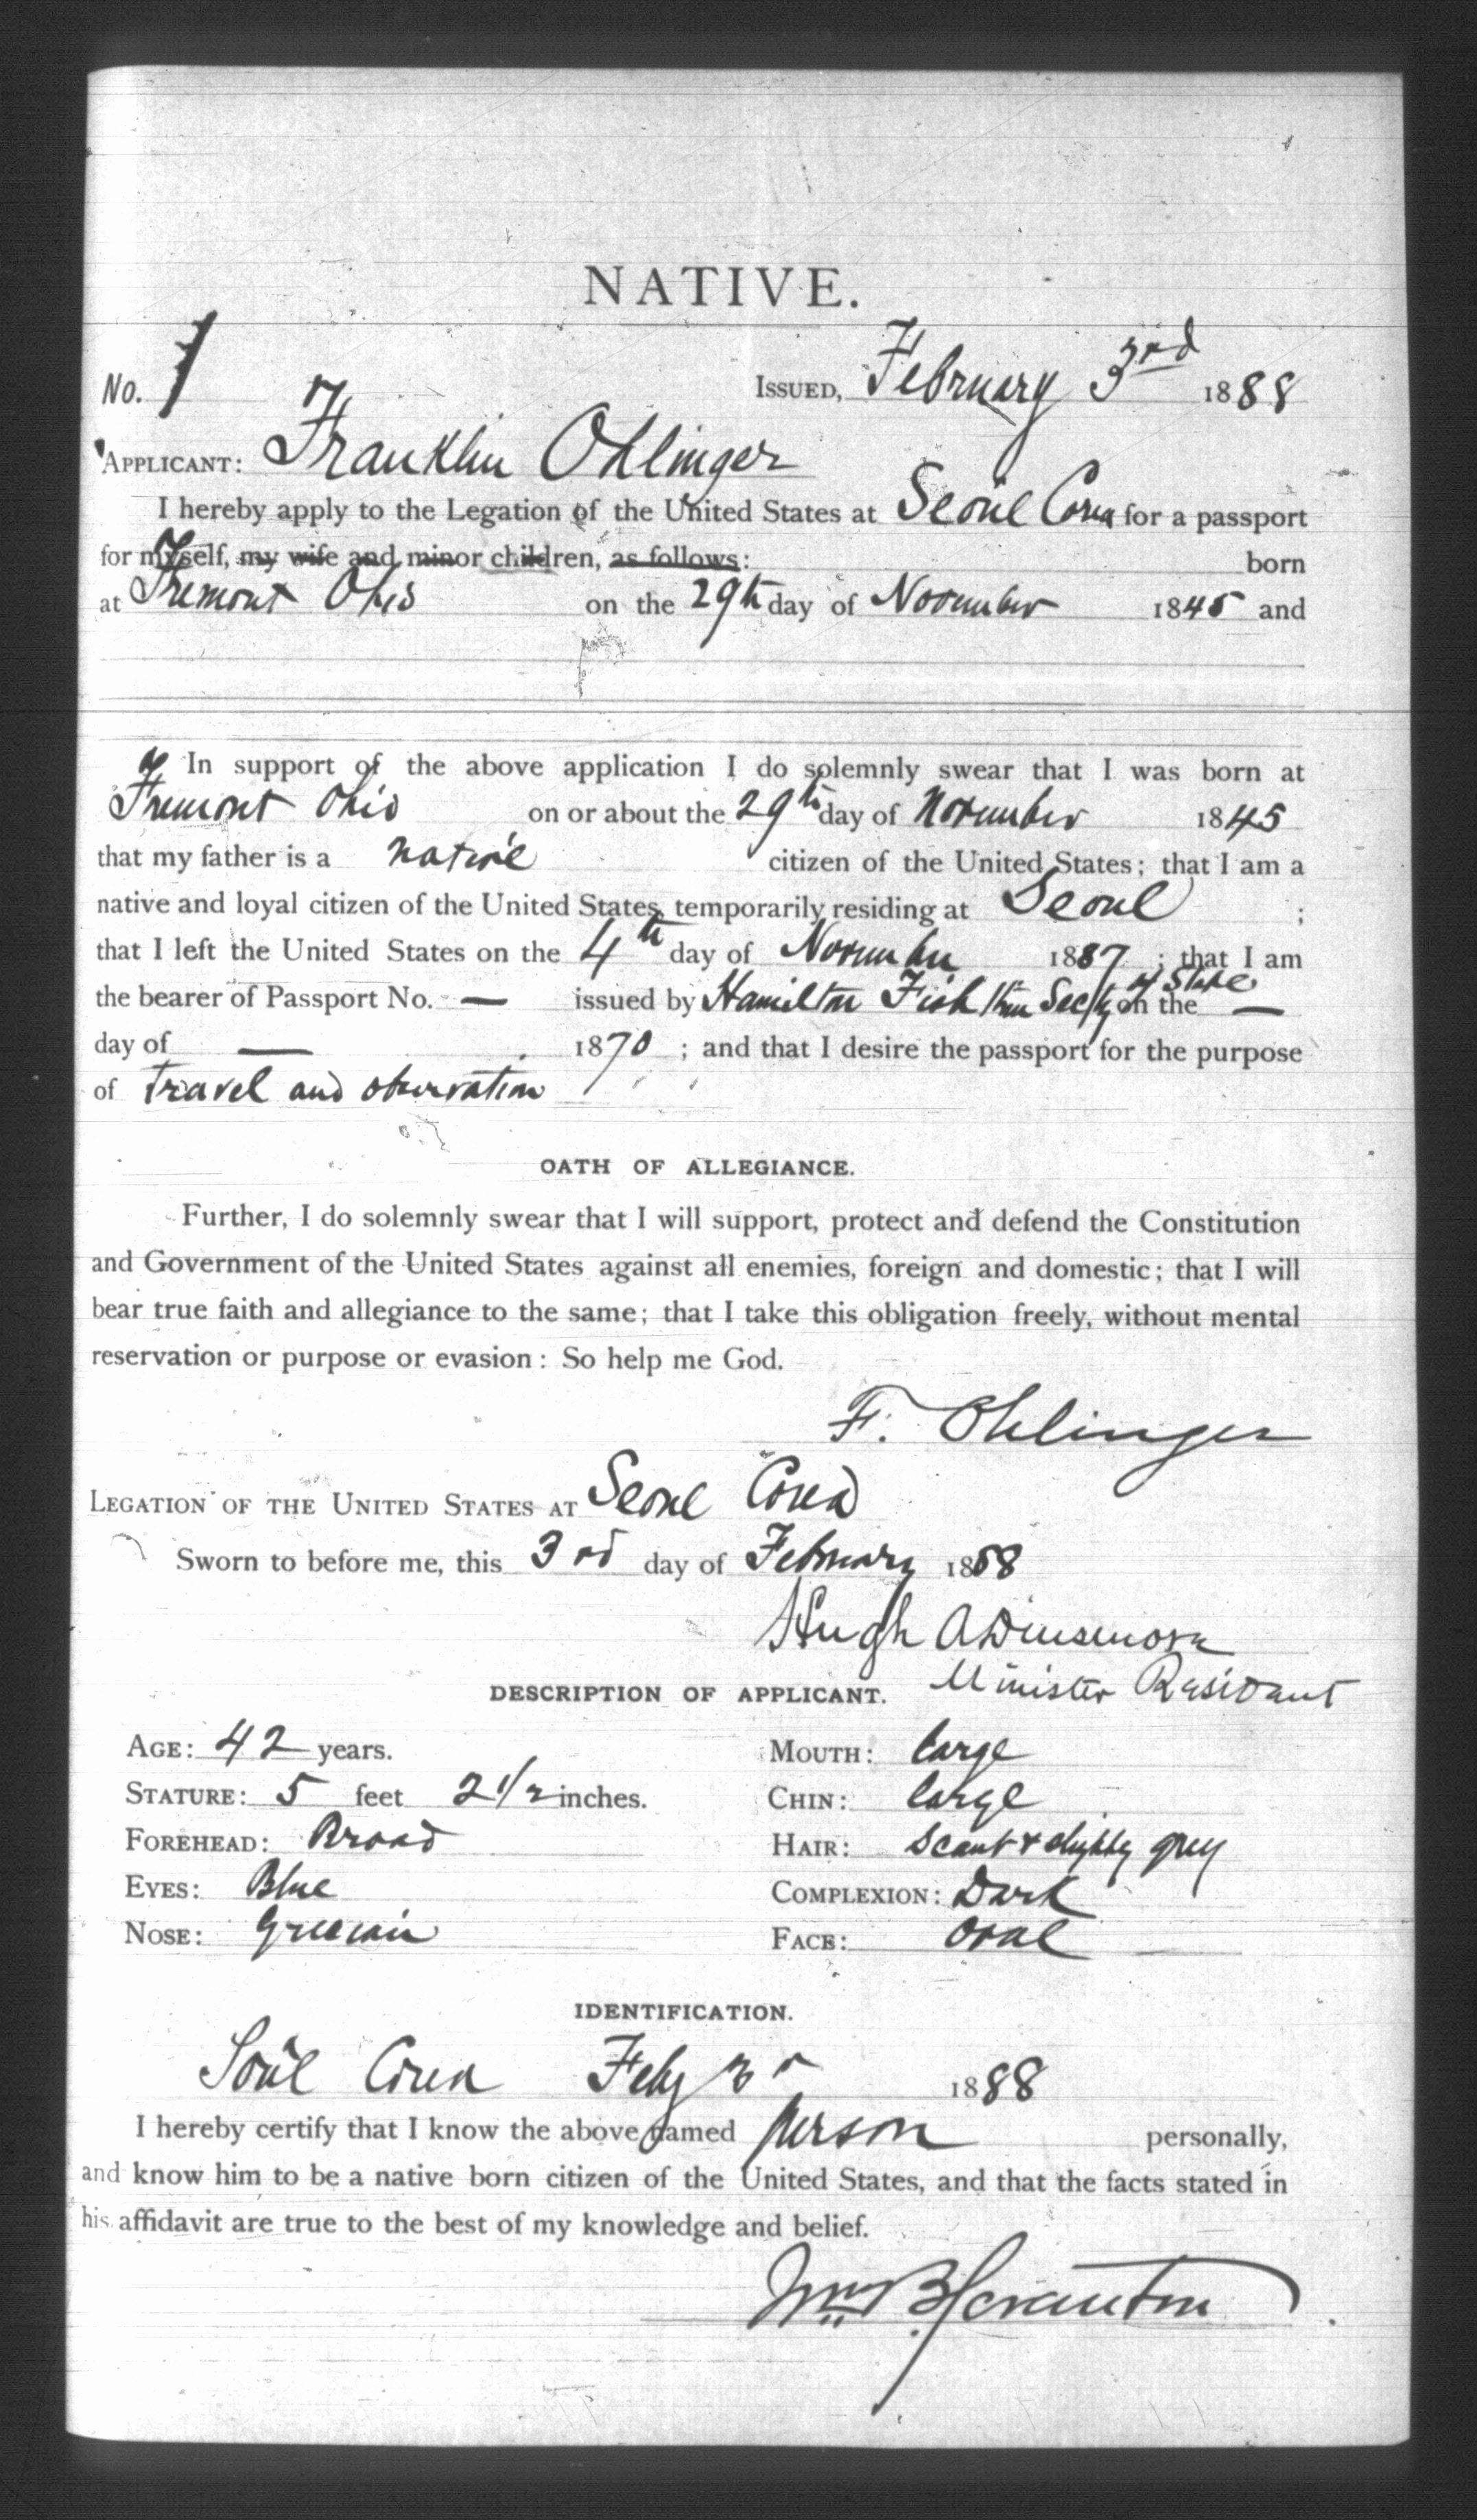 NATIVE.
No. 1 ISSUED, February 3rd 1888
APPLICANT: Franklin Ohlinger
I hereby apply to the Legation of the United States at Seoul Corea for a passport
for myself, my wife and minor children, as follows: born
at Fremont Ohio on the 29th day of November 1845 and
In support of the above application I do solemnly swear that I was born at
Fremont Ohio on or about the 29th day of November 1845
that my father is a native citizen of the United States; that I am a
native and loyal citizen of the United States, temporarily residing at Seoul ;
that I left the United States on the 4th day of November 1887 ; that I am
the bearer of Passport No. — issued by Hamilton Fish then Secty of State on the —
day of — 1870 ; and that I desire the passport for the purpose
of travel and observation
OATH OF ALLEGIANCE.
Further, I do solemnly swear that I will support, protect and defend the Constitution
and Government of the United States against all enemies, foreign and domestic; that I will
bear true faith and allegiance to the same; that I take this obligation freely, without mental
reservation or purpose or evasion: So help me God.
F. Ohlinger
LEGATION OF THE UNITED STATES AT Seoul Corea
Sworn to before me, this 3rd day of February 1888
Hugh A Dinsmore
DESCRIPTION OF APPLICANT. Minister Resident
AGE: 42 years. MOUTH: large
STATURE: 5 feet 2 1/2 inches. CHIN: large
FOREHEAD: Broad HAIR: scant & slightly grey
EYES: Blue COMPLEXION: Dark
NOSE: Grecian FACE: oval
IDENTIFICATION.
Söul Corea Feby 3r 1888
I hereby certify that I know the above named person personally,
and know him to be a native born citizen of the United States, and that the facts stated in
his affidavit are true to the best of my knowledge and belief.
Wm B Scranton